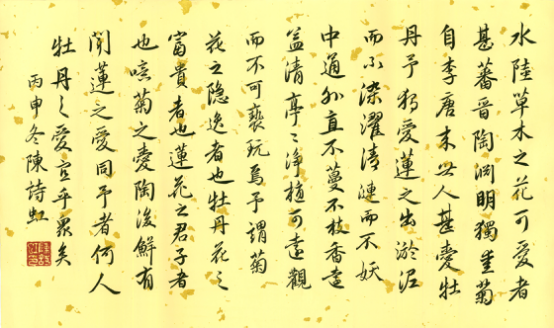 水陸草木之花可愛者
甚蕃晉陶渊明獨愛菊
自李唐来世人甚愛牡
丹予独愛蓮之出淤泥
而不染濯清漣而不妖
中通外直不蔓不枝香遠
益清亭〻净植可遠觀
而不可褻玩焉予謂菊
花之隐逸者也牡丹花之
富貴者也蓮花之君子者
也噫菊之愛陶後鮮有
聞蓮之愛同予者何人
牡丹之愛宜乎眾矣
丙申冬陳詩虹